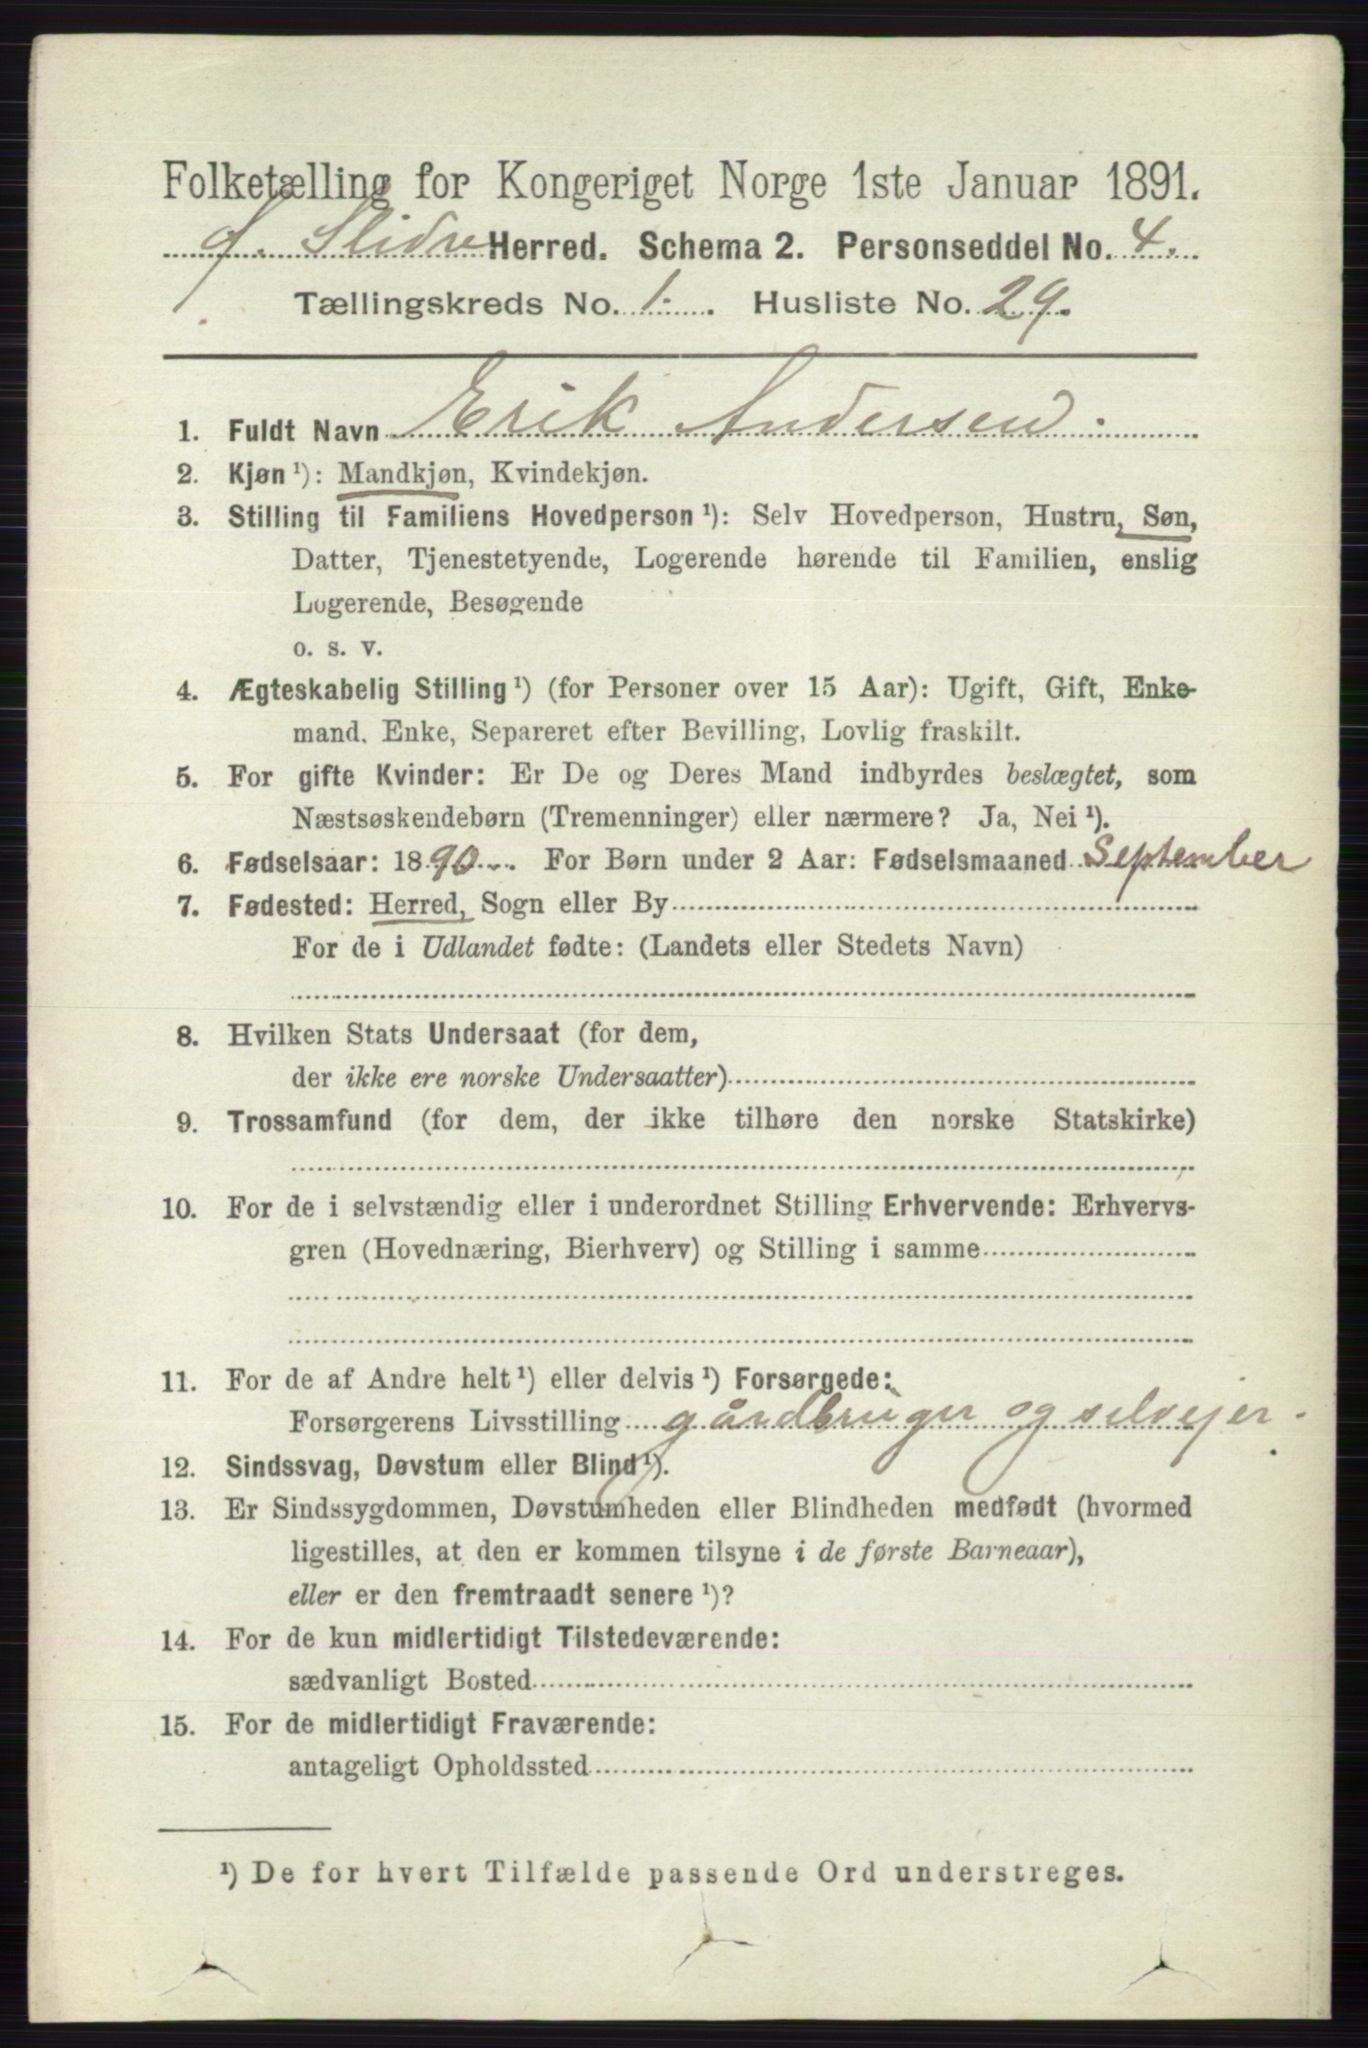 Folketælling for Kongeriget Norge 1ste Januar 1891.
Slidre Herred. Schema 2. Personseddel No. 4.
Tællingskreds No. 1. Husliste No. 29.
1. Fuldt Navn Erik Andersen.
2. Kjøn ¹): Mandkjøn, Kvindekjøn.
3. Stilling til Familiens Hovedperson ¹): Selv Hovedperson, Hustru, Søn,
Datter, Tjenestetyende, Logerende hørende til Familien, enslig
Logerende, Besøgende
o. s. v.
4. Ægteskabelig Stilling ¹) (for Personer over 15 Aar): Ugift, Gift, Enke-
mand, Enke, Separeret efter Bevilling, Lovlig fraskilt.
5. For gifte Kvinder: Er De og Deres Mand indbyrdes beslægtet, som
Næstsøskendebørn (Tremenninger) eller nærmere? Ja, Nei ¹).
6. Fødselsaar: 1890. For Børn under 2 Aar: Fødselsmaaned September
7. Fødested: Herred, Sogn eller By
For de i Udlandet fødte: (Landets eller Stedets Navn)
8. Hvilken Stats Undersaat (for dem,
der ikke ere norske Undersaatter)
9. Trossamfund (for dem, der ikke tilhøre den norske Statskirke)
10. For de i selvstændig eller i underordnet Stilling Erhvervende: Erhvervs-
gren (Hovednæring, Bierhverv) og Stilling i samme
11. For de af Andre helt ¹) eller delvis ¹) Forsørgede:
Forsørgerens Livsstilling gårdbruger og selvejer.
12. Sindssvag, Døvstum eller Blind ¹).
13. Er Sindssygdommen, Døvstumheden eller Blindheden medfødt (hvormed
ligestilles, at den er kommen tilsyne i de første Barneaar),
eller er den fremtraadt senere ¹)?
14. For de kun midlertidigt Tilstedeværende:
sædvanligt Bosted
15. For de midlertidigt Fraværende:
antageligt Opholdssted
¹) De for hvert Tilfælde passende Ord understreges.